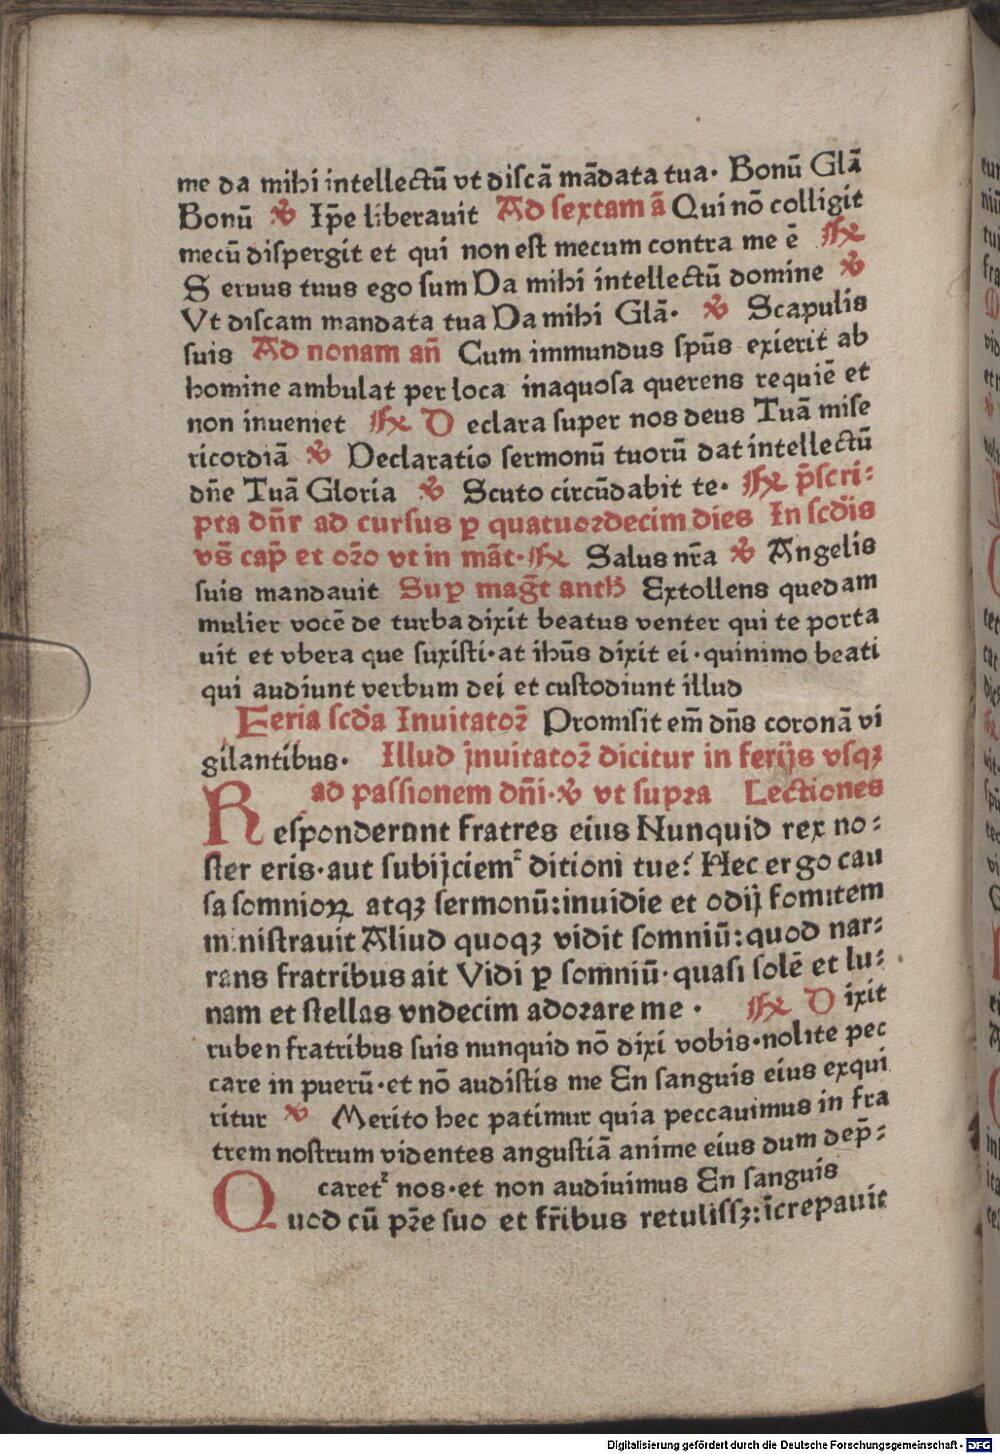 me da mihi intellectū vt discā mādata tua· Bonū Glā
Bonū ℣ Ip̄e liberauit Ad sextam ā Qui nō colligit
mecū dispergit et qui non est mecum contra me ē ℟
S eruus tuus ego sum Da mihi intellectū domine ℣
Vt discam mandata tua Da mihi Glā· ℣ Scapulis
suis Ad nonam añ Cum immundus sp̄us exierit ab
homine ambulat per loca inaquosa querens requiē et
non inueniet ℟ D eclara super nos deus Tuā mise
ricordiā ℣ Declaratio sermonū tuorū dat intellectū
dñe Tuā Gloria ℣ Scuto circūdabit te· ℟ p̄scri:
pta dñr ad cursus ꝑ quatuordecim dies In scd̄is
vs̄ cap̄ et oꝛo vt in māt· ℟ Salus nr̄a ℣ Angelis
suis mandauit Suꝑ mag̃t anth̄ Extollens quedam
mulier vocē de turba dixit beatus venter qui te porta
uit et vbera que suxisti·at ihūs dixit ei·quinimo beati
qui audiunt verbum dei et custodiunt illud
Feria scd̄a Inuitatoꝛ̄ Promisit em̄ dn̄s coronā vi
gilantibus· Illud jnuitatoꝛ̄ dicitur in ferijs vsqꝫ
ad passionem dn̄i·℣ vt supꝛa Lectiones
R esponderunt fratres eius Nunquid rex no:
ster eris·aut subijciemᷣ ditioni tue? Hec ergo cau
sa somnioꝝ atqꝫ sermonū:inuidie et odij fomitem
ministrauit Aliud quoqꝫ vidit somniū:quod nar:
rans fratribus ait Vidi ꝑ somniū·quasi solē et lu:
nam et stellas vndecim adoꝛare me · ℟ D ixit
ruben fratribus suis nunquid nō dixi vobis·nolite pec
care in puerū·et nō audistis me En sanguis eius exqui
ritur ℣ Merito hec patimur quia peccauimus in fra
trem nostrum videntes angustiā anime eius dum dep̄:
caretᷣ nos·et non audiuimus En sanguis
Q uod cū pꝛ̄e suo et fr̄ibus retulissꝫ:īcrepauit
Digitalisierung gefördert durch die Deutsche Forschungsgemeinschaft · DFG